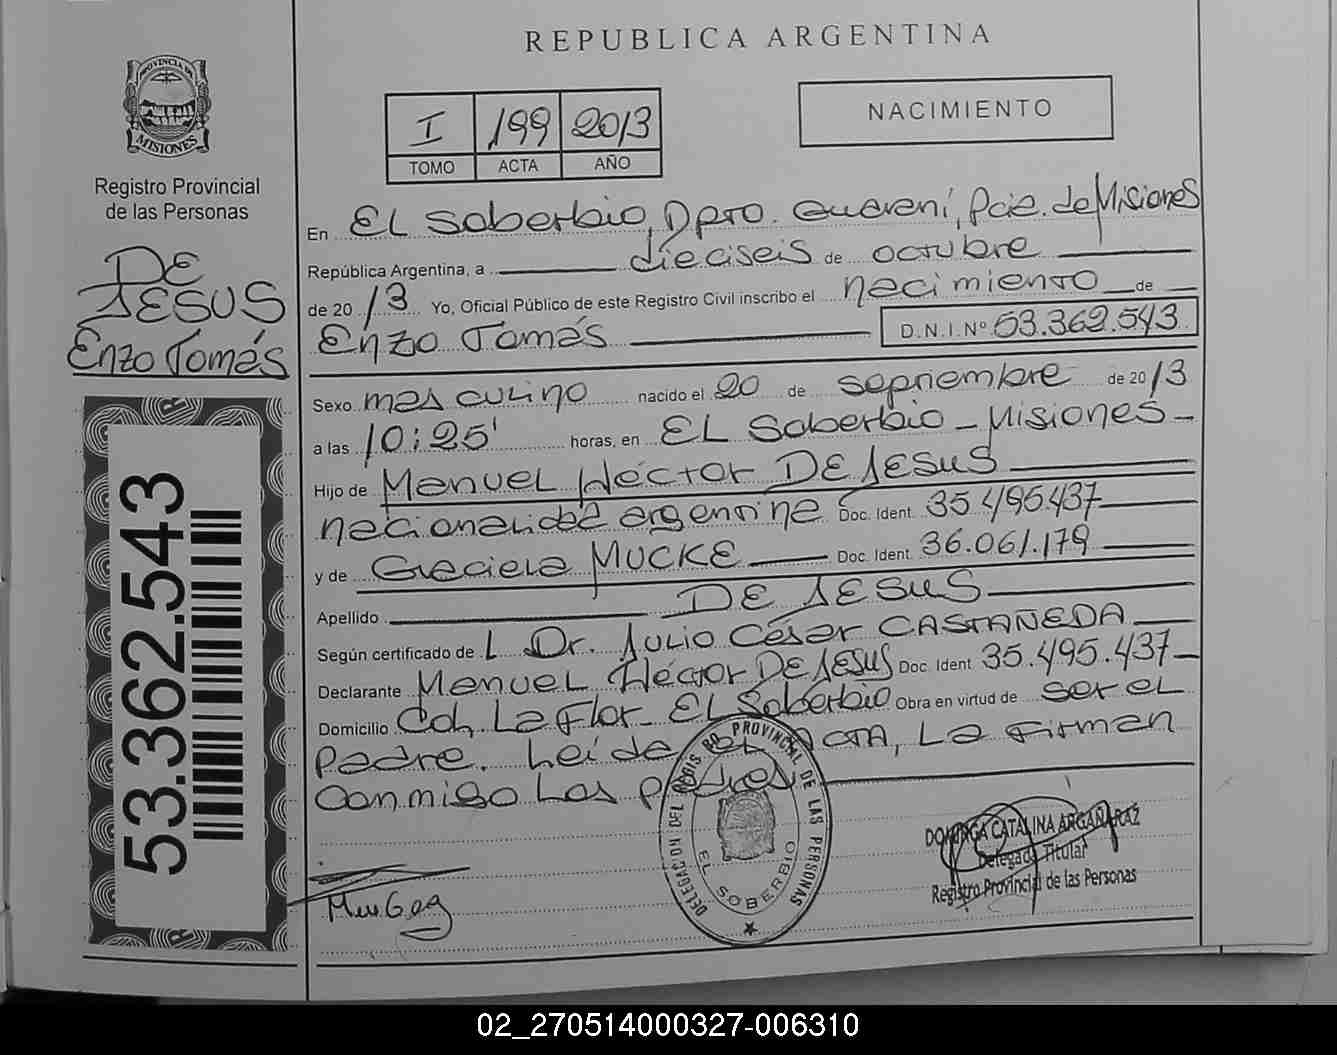 REPUBLICA ARGENTINA
PROVINCIA DE
MISIONES
Registro Provincial
de las Personas
DE
JESUS
Enzo Tomás
53.362.543
I 199 2013
TOMO ACTA AÑO
NACIMIENTO
En EL Soberbio, Dpto. Guaraní, Pcia. de Misiones
República Argentina, a dieciseis de octubre
de 2013 Yo, Oficial Público de este Registro Civil inscribo el nacimiento de
Enzo Tomás D.N.I.Nº 53.362.543
Sexo masculino nacido el 20 de septiembre de 2013
a las 10:25' horas, en EL Soberbio - Misiones -
Hijo de Manuel Héctor DE JESUS
nacionalidad argentina Doc. Ident. 35.495.437
y de Graciela MUCKE Doc. Ident. 36.061.179
Apellido DE JESUS
Según certificado de L Dr. Julio César CASTAÑEDA
Declarante Manuel Héctor DE JESUS Doc. Ident 35.495.437-
Domicilio Col. La Flor - EL Soberbio Obra en virtud de ser el
Padre. Leída el ACTA, La Firman
conmigo Los padres
DELEGACION DEL REGISTRO PROVINCIAL DE LAS PERSONAS
EL SOBERBIO
DOMINGA CATALINA ARGAÑARAZ
Delegada Titular
Registro Provincial de las Personas
02_270514000327-006310